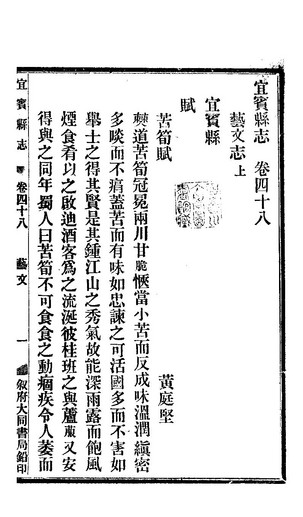 宜賓縣志 卷四十八
藝文志上
宜賓縣
賦
苦筍賦
黃庭堅
僰道苦筍冠冕兩川甘脆愜當小苦而反成味溫潤縝密
多啖而不痟蓋苦而有味如忠諫之可活國多而不害如
舉士之得其賢是其鍾江山之秀氣故能深雨露而飽風
煙食肴以之啟迪酒客為之流涎彼桂班之與蘆菔又安
得與之同年蜀人曰苦筍不可食食之動痼疾令人萎而
宜賓縣志
卷四十八
藝文
一
敘府大同書局鉛印